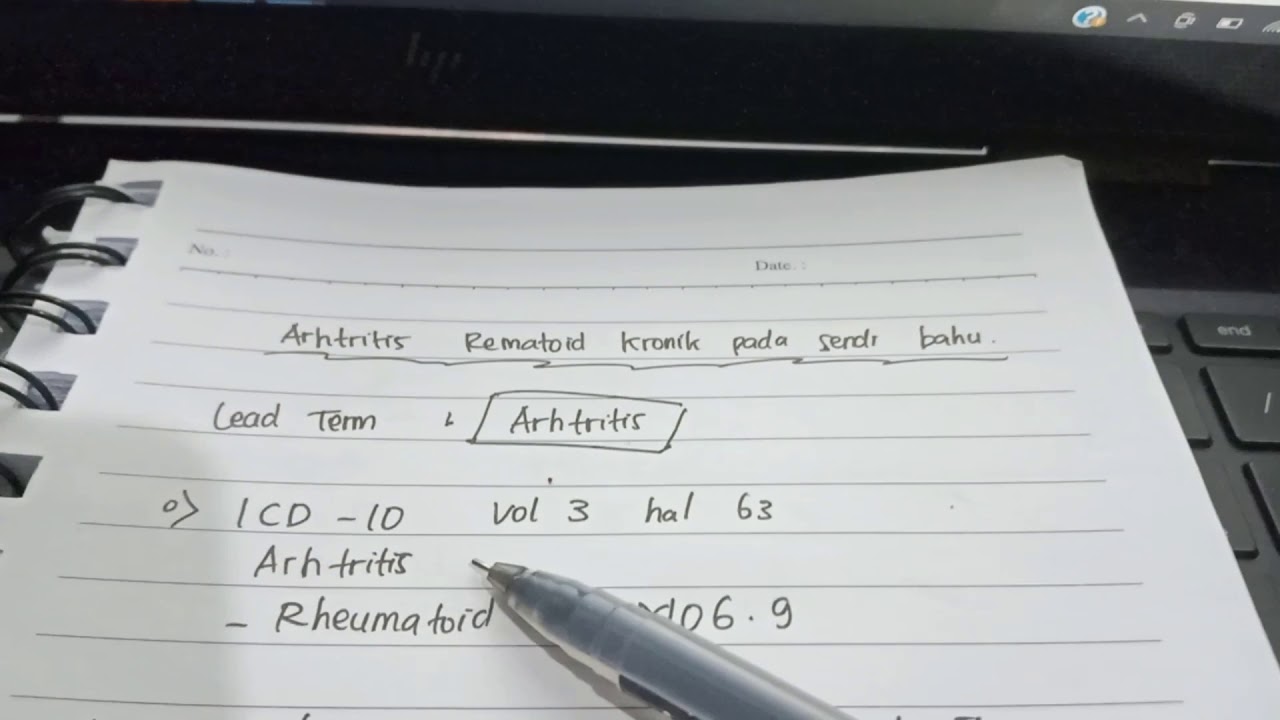 hp
end
No. :
Date. :
Arhtritis Rematoid kronik pada sendi bahu.
Lead Term : Arhtritis
o) ICD-10 vol 3 hal 63
Arhtritis
- Rheumatoid 06.9